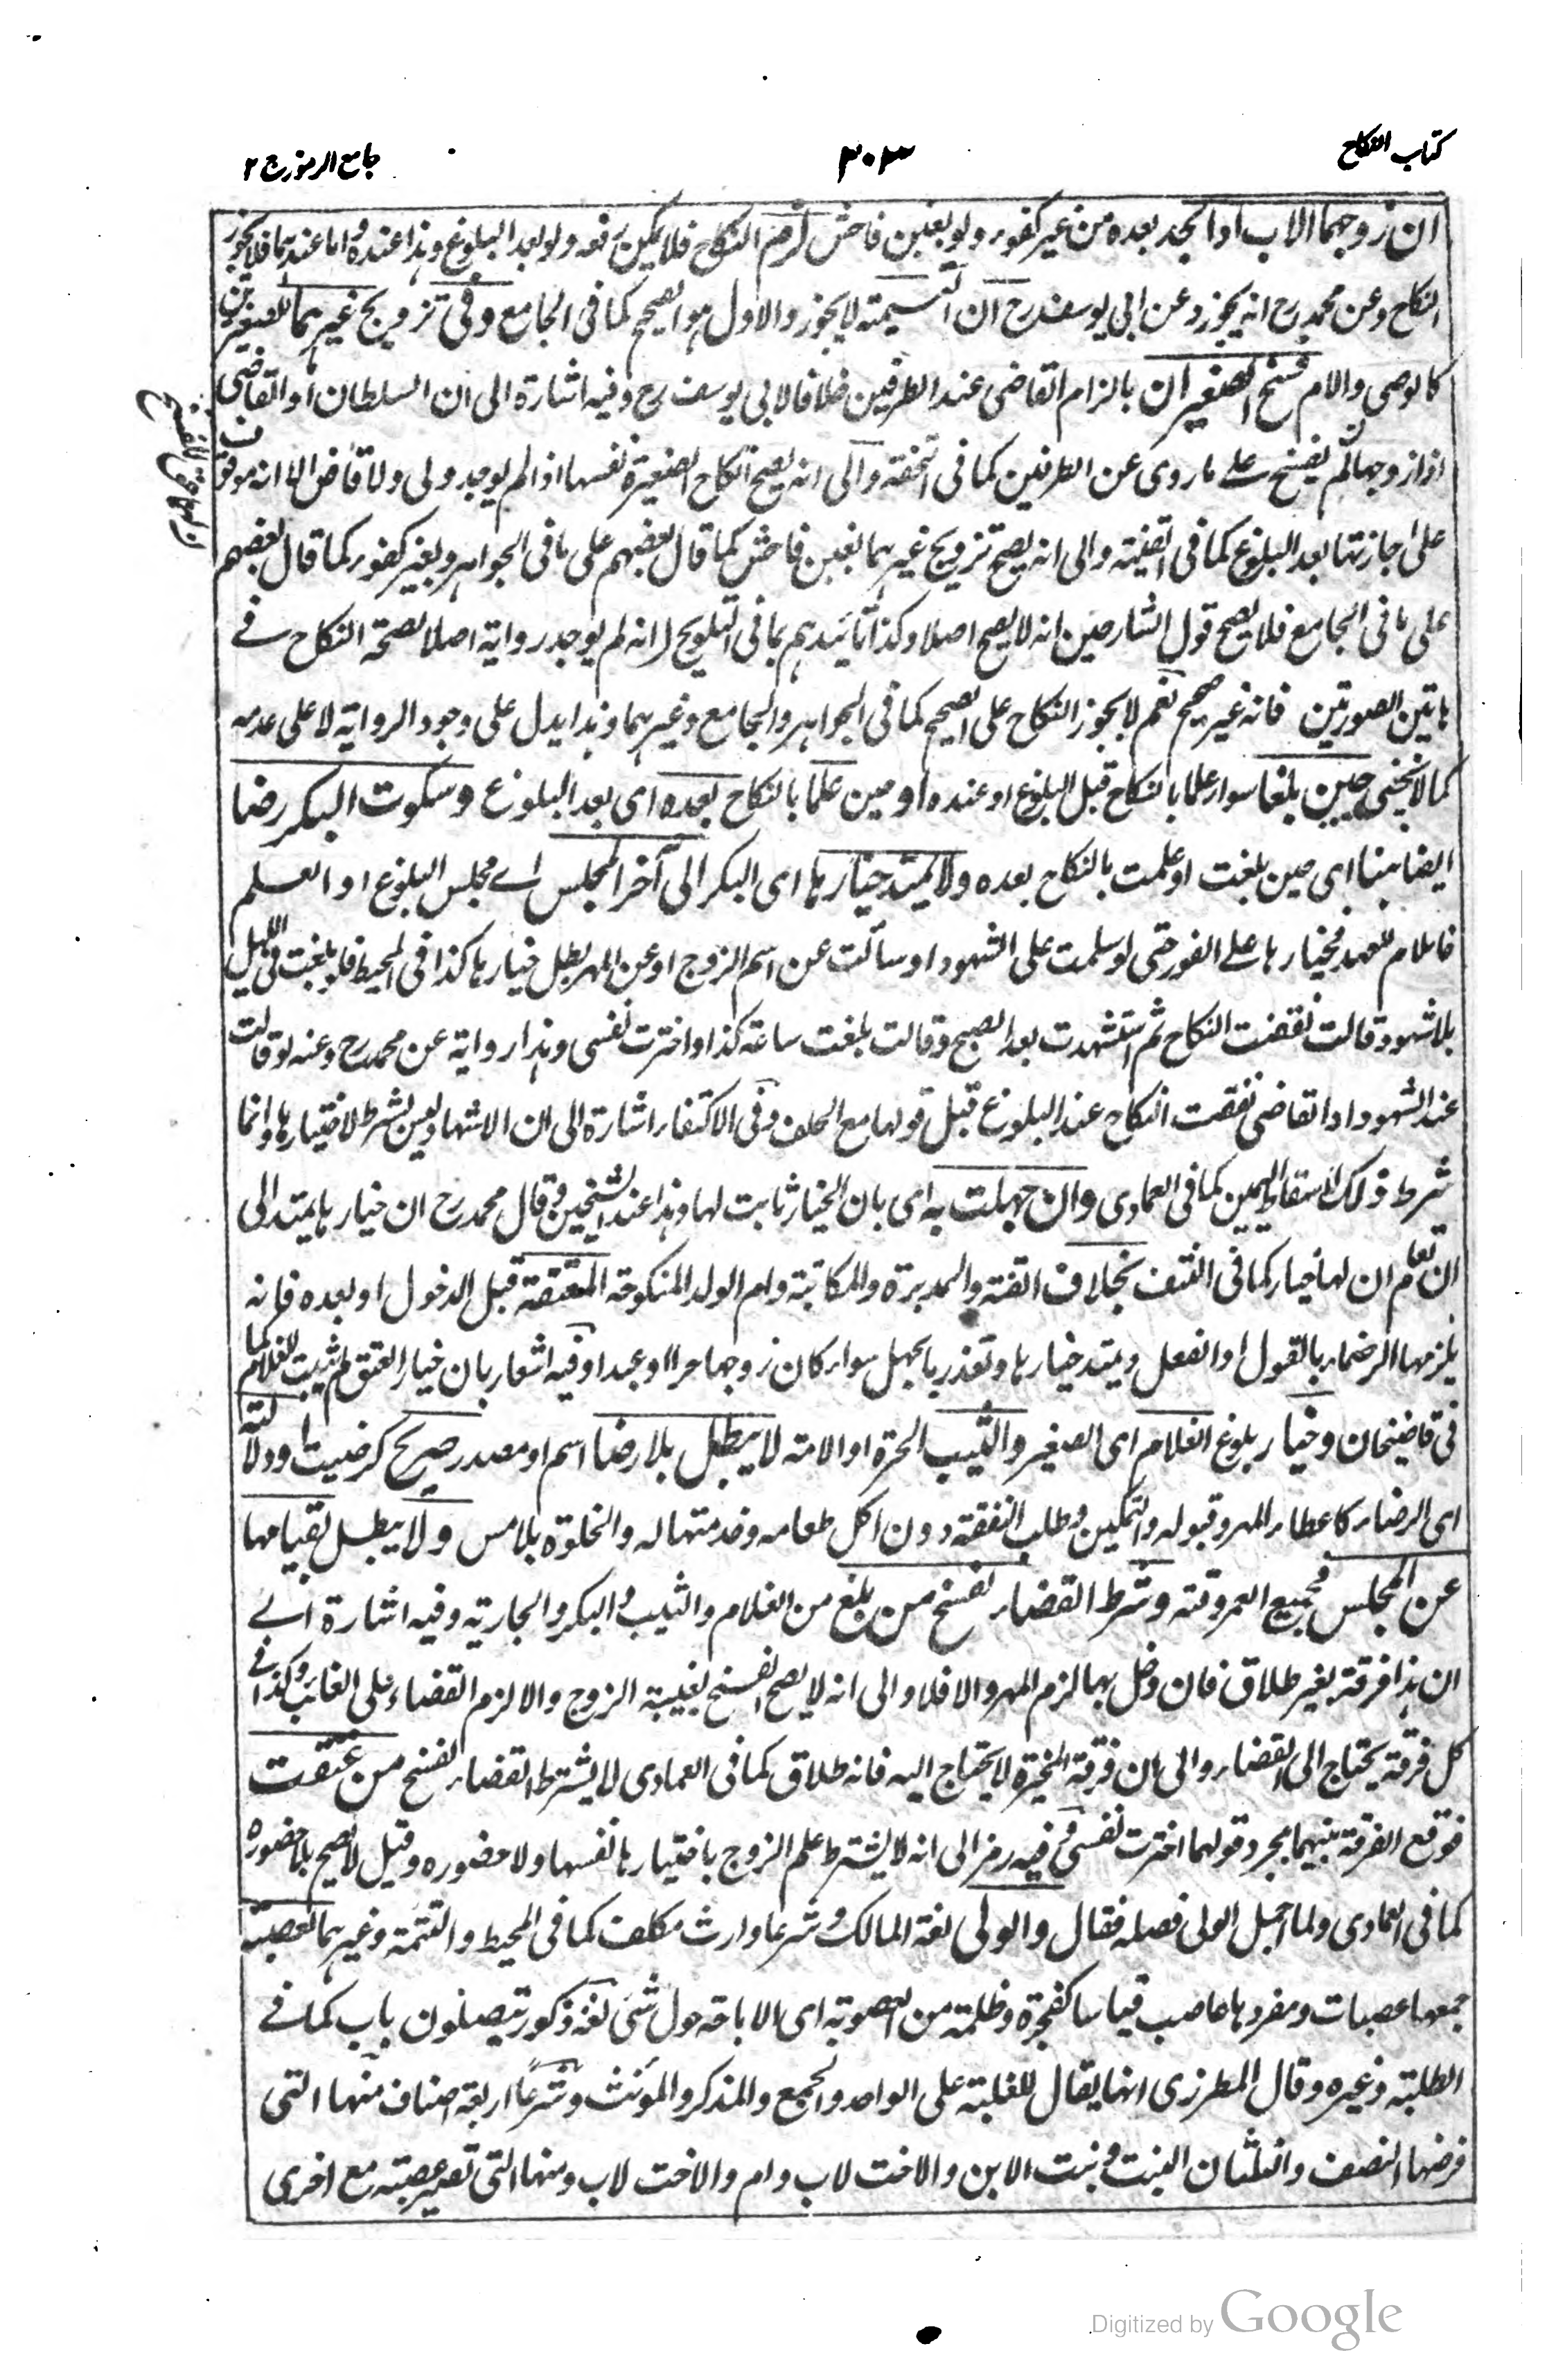 كتاب النكاح
٣٠٣
جامع الرموز ج ٢
ان زوجهما الاب او الجد بعده من غير كفور ولو بغبن فاحش لزم النكاح فلا يمكن رفعه ولو بعد البلوغ وهذا عنده واما عندهما فلا يجوز
النكاح وعن محمد رح انه يجوز وعن ابى يوسف رح ان التسمية لا يجوز والاول هو الصحيح كما فى الجامع وفى تزويج غيرهما للصغيرين
كالوصى والام فسخ الصغيران بالزام القاضى عند الطرفين خلافا لابى يوسف رح وفيه اشارة الى ان السلطان او القاضى
اذا زوجها لم يفسخ على ما روى عن الطرفين كما فى التحفة والى انه يصح انكاح الصغيرة نفسها اذا لم يوجد ولى ولا قاض الا انه موقوف
على اجازتها بعد البلوغ كما فى القنية والى انه يصح تزويج غيرهما بغبن فاحش كما قال بعضهم على ما فى الجواهر وبغير كفور كما قال بعضهم
على ما فى الجامع فلا يصح قول الشارحين انه لا يصح اصلا وكذا تائيدهم بما فى التلويح انه لم يوجد رواية اصلا لصحة النكاح فى
هاتين الصورتين فانه غير صحيح نعم لا يجوز النكاح على الصحيح كما فى الجواهر والجامع وغيرهما وهذا يدل على وجود الرواية لا على عدمه
كما لا يخفى حين بلغا سوار علما بالنكاح قبل البلوغ او عنده او حين علما بالنكاح بعده اى بعد البلوغ وسكوت البكر رضا
ايضا هنا اى حين بلغت او علمت بالنكاح بعده ولا يمتد خيارها اى البكر الى آخر المجلس اى مجلس البلوغ او العلم
فاللام للعهد فخيارها على الفور حتى لو سلمت على الشهود او سألت عن اسم الزوج او عن المهر بطل خيارها كذا فى المحيط فلو بلغت فى الليل
بلا شهود قالت نقضت النكاح ثم استشهدت بعد الصبح وقالت بلغت ساعة كذا واخترت نفسى وهذا رواية عن محمد رح وعنه لو قالت
عند الشهود او القاضى نقضت النكاح عند البلوغ قبل قولها مع الحلف وفى الاكتفاء اشارة الى ان الاشهاد ليس بشرط لاختيارها وانما
شرط ذلك لاسقاط اليمين كما فى العمادى وان جهلت به اى بان الخيار ثابت لها وهذا عند الشيخين وقال محمد رح ان خيارها يمتد الى
ان تعلم ان لها خيار كما فى النتف بخلاف القنة والمدبرة والمكاتبة وام الولد المنكوحة المعتقة قبل الدخول او بعده فانه
يلزمها الرضاء بالقول او الفعل ويمتد خيارها وتعذر بالجهل سوار كان زوجها حرا او عبدا وفيه اشعار بان خيار العتق لم يثبت للغلام كما
فى قاضيخان وخيار بلوغ الغلام اى الصغير والثيب الحرة او الامة لا يبطل بلا رضا اسم او مصدر صريح كرضيت او دلالة
اى الرضاء كاعطاء المهر وقبوله والتمكين وطلب النفقة دون اكل طعامه وخدمتها له والخلوة بلا مس ولا يبطل بقيامها
عن المجلس فجميع العمر وقته وشرط القضاء لفسخ من بلغ من الغلام والثيب والبكر والجارية وفيه اشارة الى
ان هذا فرقة بغير طلاق فان دخل بها لزم المهر والا فلا والى انه لا يصح الفسخ بغيبة الزوج والا لزم القضاء على الغائب وكذا فى
كل فرقة يحتاج الى القضاء والى ان فرقة المخيرة لا يحتاج اليه فانه طلاق كما فى العمادى لا يشترط القضاء لفسخ من عتقت
فوقع الفرقة بينهما بمجرد قولهما اخترت نفسى وفيه رمز الى انه لا يشترط علم الزوج باختيارها نفسها ولا حضوره وقيل لا يصح بلا حضوره
كما فى العمادى ولما اجمل الولى فصله فقال والولى لغة المالك وشرعا وارث مكلف كما فى المحيط والتتمة وغيرهما العصبة
جمعها عصبات ومفردها عاصب قياسا كفجرة وظلمة من العصوبة اى الاحاطة حول شئ لغة ذكور يتصلون باب كما فى
الطلبة وغيره وقال المطرزى انها يقال للغلبة على الواحد والجمع والمذكر والمؤنث وشرعا اربعة اصناف منها التى
فرضها النصف والثلثان البنت وبنت الابن والاخت لاب وام والاخت لاب ومنها التى تصير عصبة مع اخرى
Digitized by Google